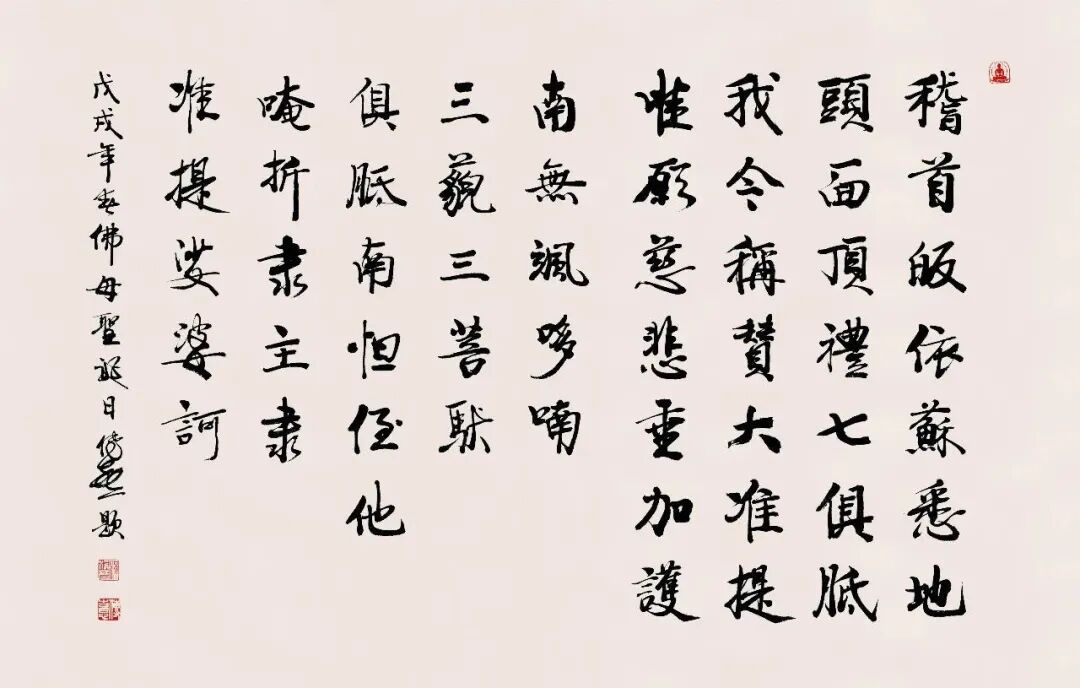 稽首皈依蘇悉地
頭面頂禮七俱胝
我今稱贊大准提
唯願慈悲垂加護
南無颯哆喃
三藐三菩馱
俱胝南怛侄他
唵折隶主隶
准提娑婆訶
戊戌年春佛母聖誕日 題